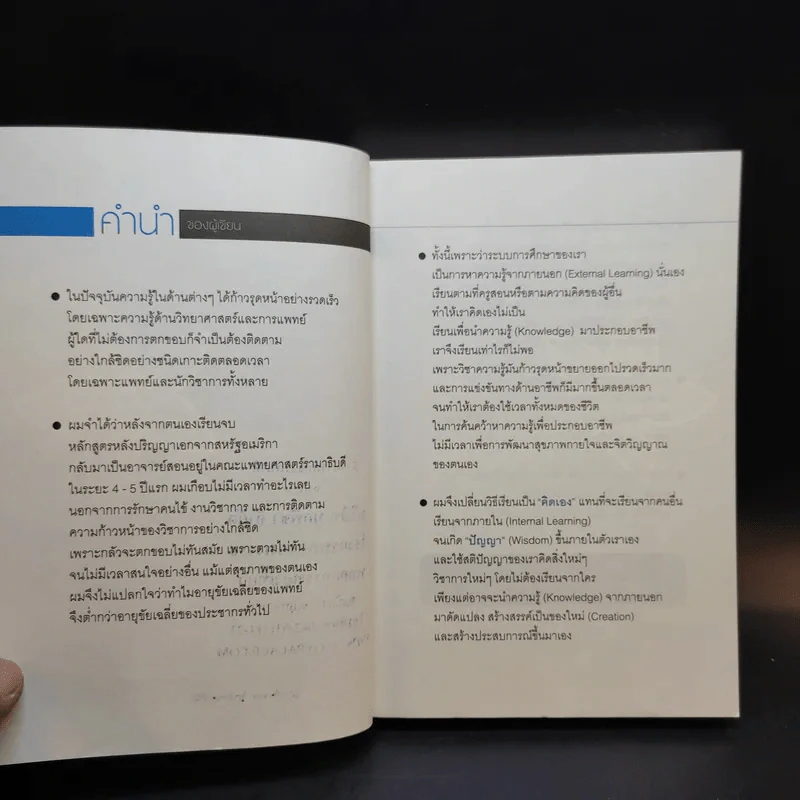 คำนำ
ของผู้เขียน
● ในปัจจุบันความรู้ในด้านต่างๆ ได้ก้าวรุดหน้าอย่างรวดเร็ว
โดยเฉพาะความรู้ด้านวิทยาศาสตร์และการแพทย์
ผู้ใดที่ไม่ต้องการตกขอบก็จำเป็นต้องติดตาม
อย่างใกล้ชิดอย่างชนิดเกาะติดตลอดเวลา
โดยเฉพาะแพทย์และนักวิชาการทั้งหลาย
● ผมจำได้ว่าหลังจากตนเองเรียนจบ
หลักสูตรหลังปริญญาเอกจากสหรัฐอเมริกา
กลับมาเป็นอาจารย์สอนอยู่ในคณะแพทยศาสตร์รามาธิบดี
ในระยะ 4 - 5 ปีแรก ผมเกือบไม่มีเวลาทำอะไรเลย
นอกจากการรักษาคนไข้ งานวิชาการ และการติดตาม
ความก้าวหน้าของวิชาการอย่างใกล้ชิด
เพราะกลัวจะตกขอบไม่ทันสมัย เพราะตามไม่ทัน
จนไม่มีเวลาสนใจอย่างอื่น แม้แต่สุขภาพของตนเอง
ผมจึงไม่แปลกใจว่าทำไมอายุขัยเฉลี่ยของแพทย์
จึงต่ำกว่าอายุขัยเฉลี่ยของประชากรทั่วไป
● ทั้งนี้เพราะว่าระบบการศึกษาของเรา
เป็นการหาความรู้จากภายนอก (External Learning) นั่นเอง
เรียนตามที่ครูสอนหรือตามความคิดของผู้อื่น
ทำให้เราคิดเองไม่เป็น
เรียนเพื่อนำความรู้ (Knowledge) มาประกอบอาชีพ
เราจึงเรียนเท่าไรก็ไม่พอ
เพราะวิชาความรู้มันก้าวรุดหน้าขยายออกไปรวดเร็วมาก
และการแข่งขันทางด้านอาชีพก็มีมากขึ้นตลอดเวลา
จนทำให้เราต้องใช้เวลาทั้งหมดของชีวิต
ในการค้นคว้าหาความรู้เพื่อประกอบอาชีพ
ไม่มีเวลาเพื่อการพัฒนาสุขภาพกายใจและจิตวิญญาณ
ของตนเอง
● ผมจึงเปลี่ยนวิธีเรียนเป็น "คิดเอง" แทนที่จะเรียนจากคนอื่น
เรียนจากภายใน (Internal Learning)
จนเกิด "ปัญญา" (Wisdom) ขึ้นภายในตัวเราเอง
และใช้สติปัญญาของเราคิดสิ่งใหม่ๆ
วิชาการใหม่ๆ โดยไม่ต้องเรียนจากใคร
เพียงแต่อาจจะนำความรู้ (Knowledge) จากภายนอก
มาดัดแปลง สร้างสรรค์เป็นของใหม่ (Creation)
และสร้างประสบการณ์ขึ้นมาเอง